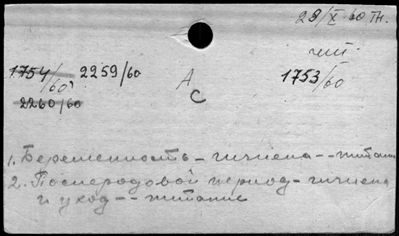 28/X 60 Тг.
чит.
1754/60 2259/60 А 1753/60
2260/60 С
1. Беременность – гигиена -- питание
2. Послеродовой период – гигиена
и уход -- питание